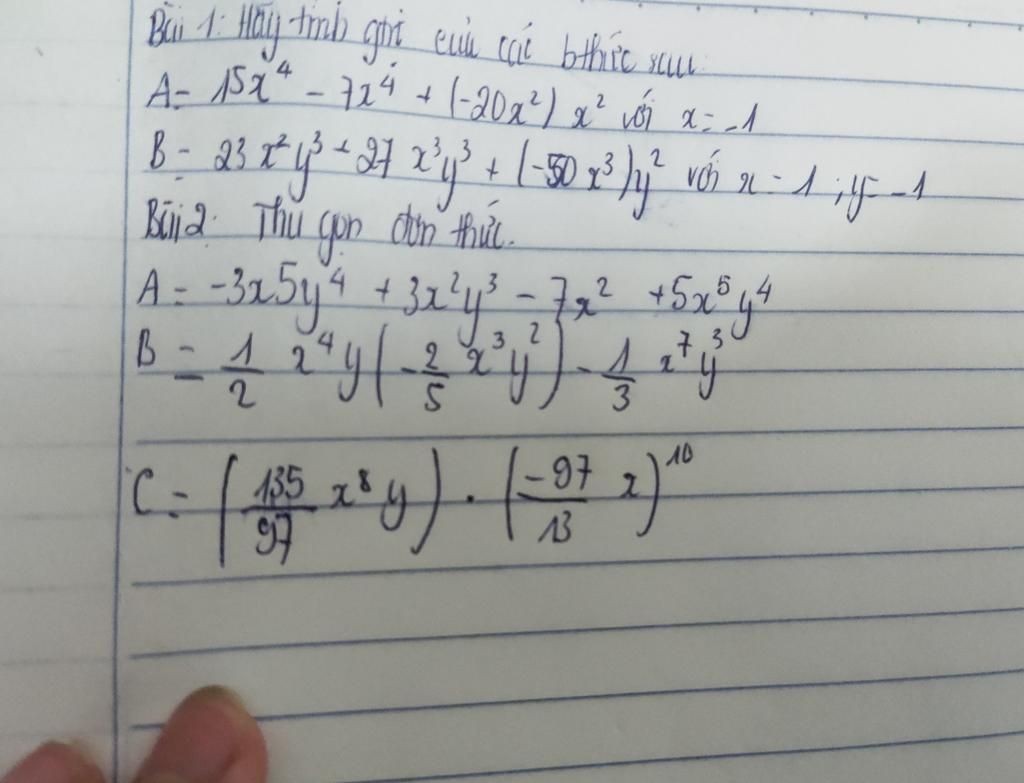 Bài 1: Hãy tính gtrị của các bthức sau:
A = 15x⁴ - 7x⁴ + (-20x²) x² với x = -1
B = 23x²y³ + 27x³y³ + (-50x³)y² với x = 1 ; y = -1
Bài 2: Thu gọn đơn thức.
A = -3x5y⁴ + 3x²y³ - 7x² + 5x⁵y⁴
B = 1/2 x⁴y(-2/5 x³y²) - 1/3 x⁷y³
C = (135/97 x⁸y) . (-97/13 x)¹⁰